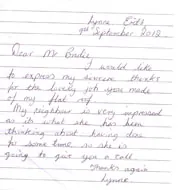 Lynne
9th September 2012
Dear Mr
I would like
to express my sincere thanks
for the lovely job you made
of my flat roof.
My neighbour is very impressed
as its what she has been
thinking about having done
for some time, so she is
going to give you a call
Thanks again
Lynne